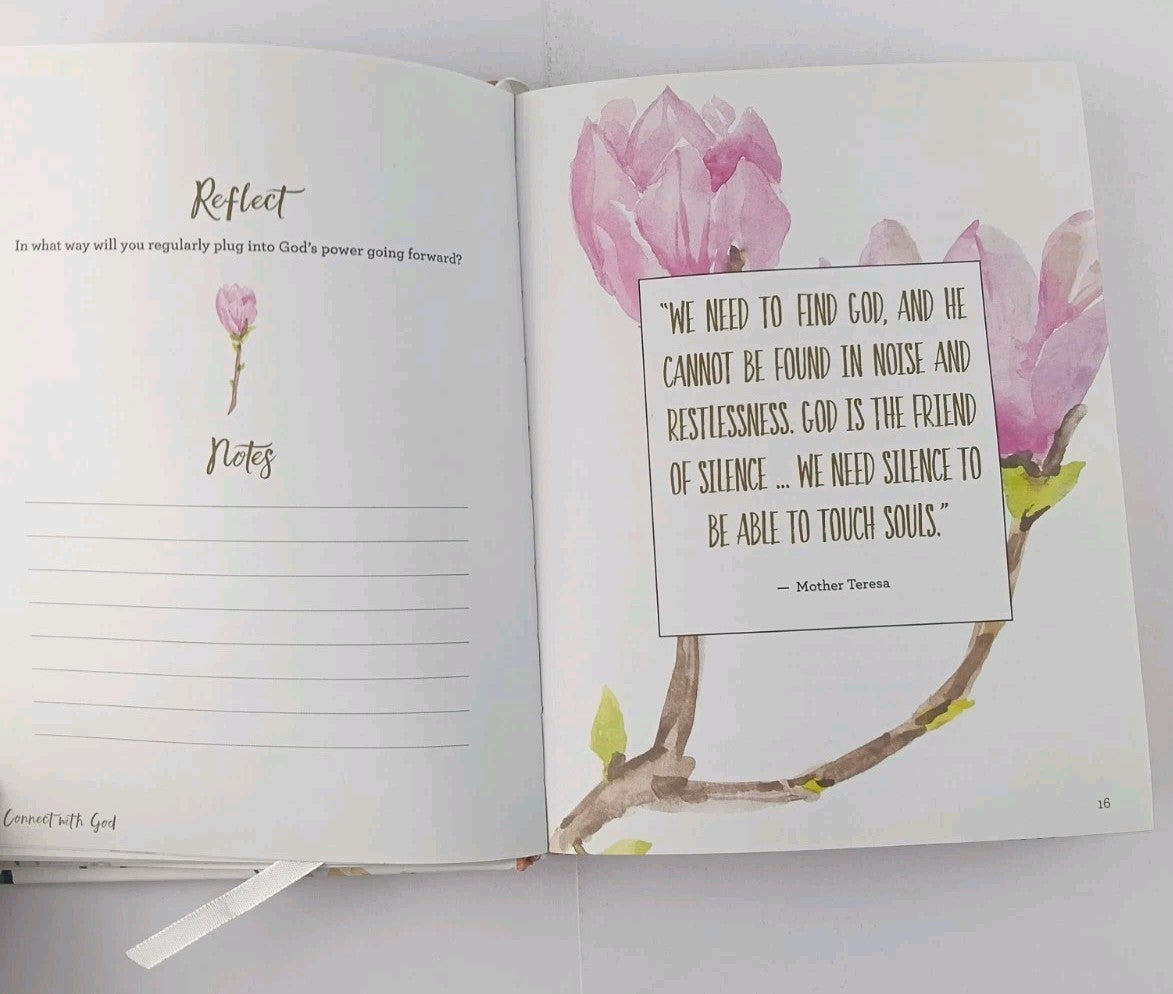 Reflect
In what way will you regularly plug into God's power going forward?
Notes
Connect with God
"WE NEED TO FIND GOD, AND HE
CANNOT BE FOUND IN NOISE AND
RESTLESSNESS. GOD IS THE FRIEND
OF SILENCE ... WE NEED SILENCE TO
BE ABLE TO TOUCH SOULS."
— Mother Teresa
16